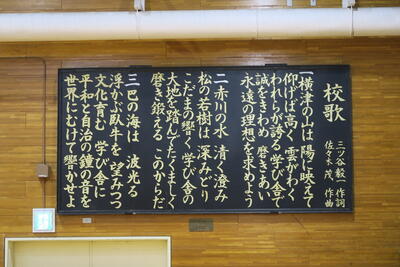 校歌
三ツ谷毅一 作詞
佐々木 茂 作曲
一 横津の山は 陽に映えて
仰げば高く 雲がわく
われらが誇る 学び舎で
誠をきわめ 磨きあい
永遠の理想を 求めよう
二 赤川の水 清く澄み
松の若樹は 深みどり
こだまの響く 学び舎の
大地を踏んで たくましく
磨き鍛える このからだ
三 巴の海は 波光る
浮かぶ臥牛を 望みつつ
文化育む 学び舎に
平和と自治の 鐘の音を
世界にむけて 響かせよう